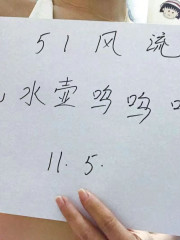 51风流
水壶呜呜
11.5.